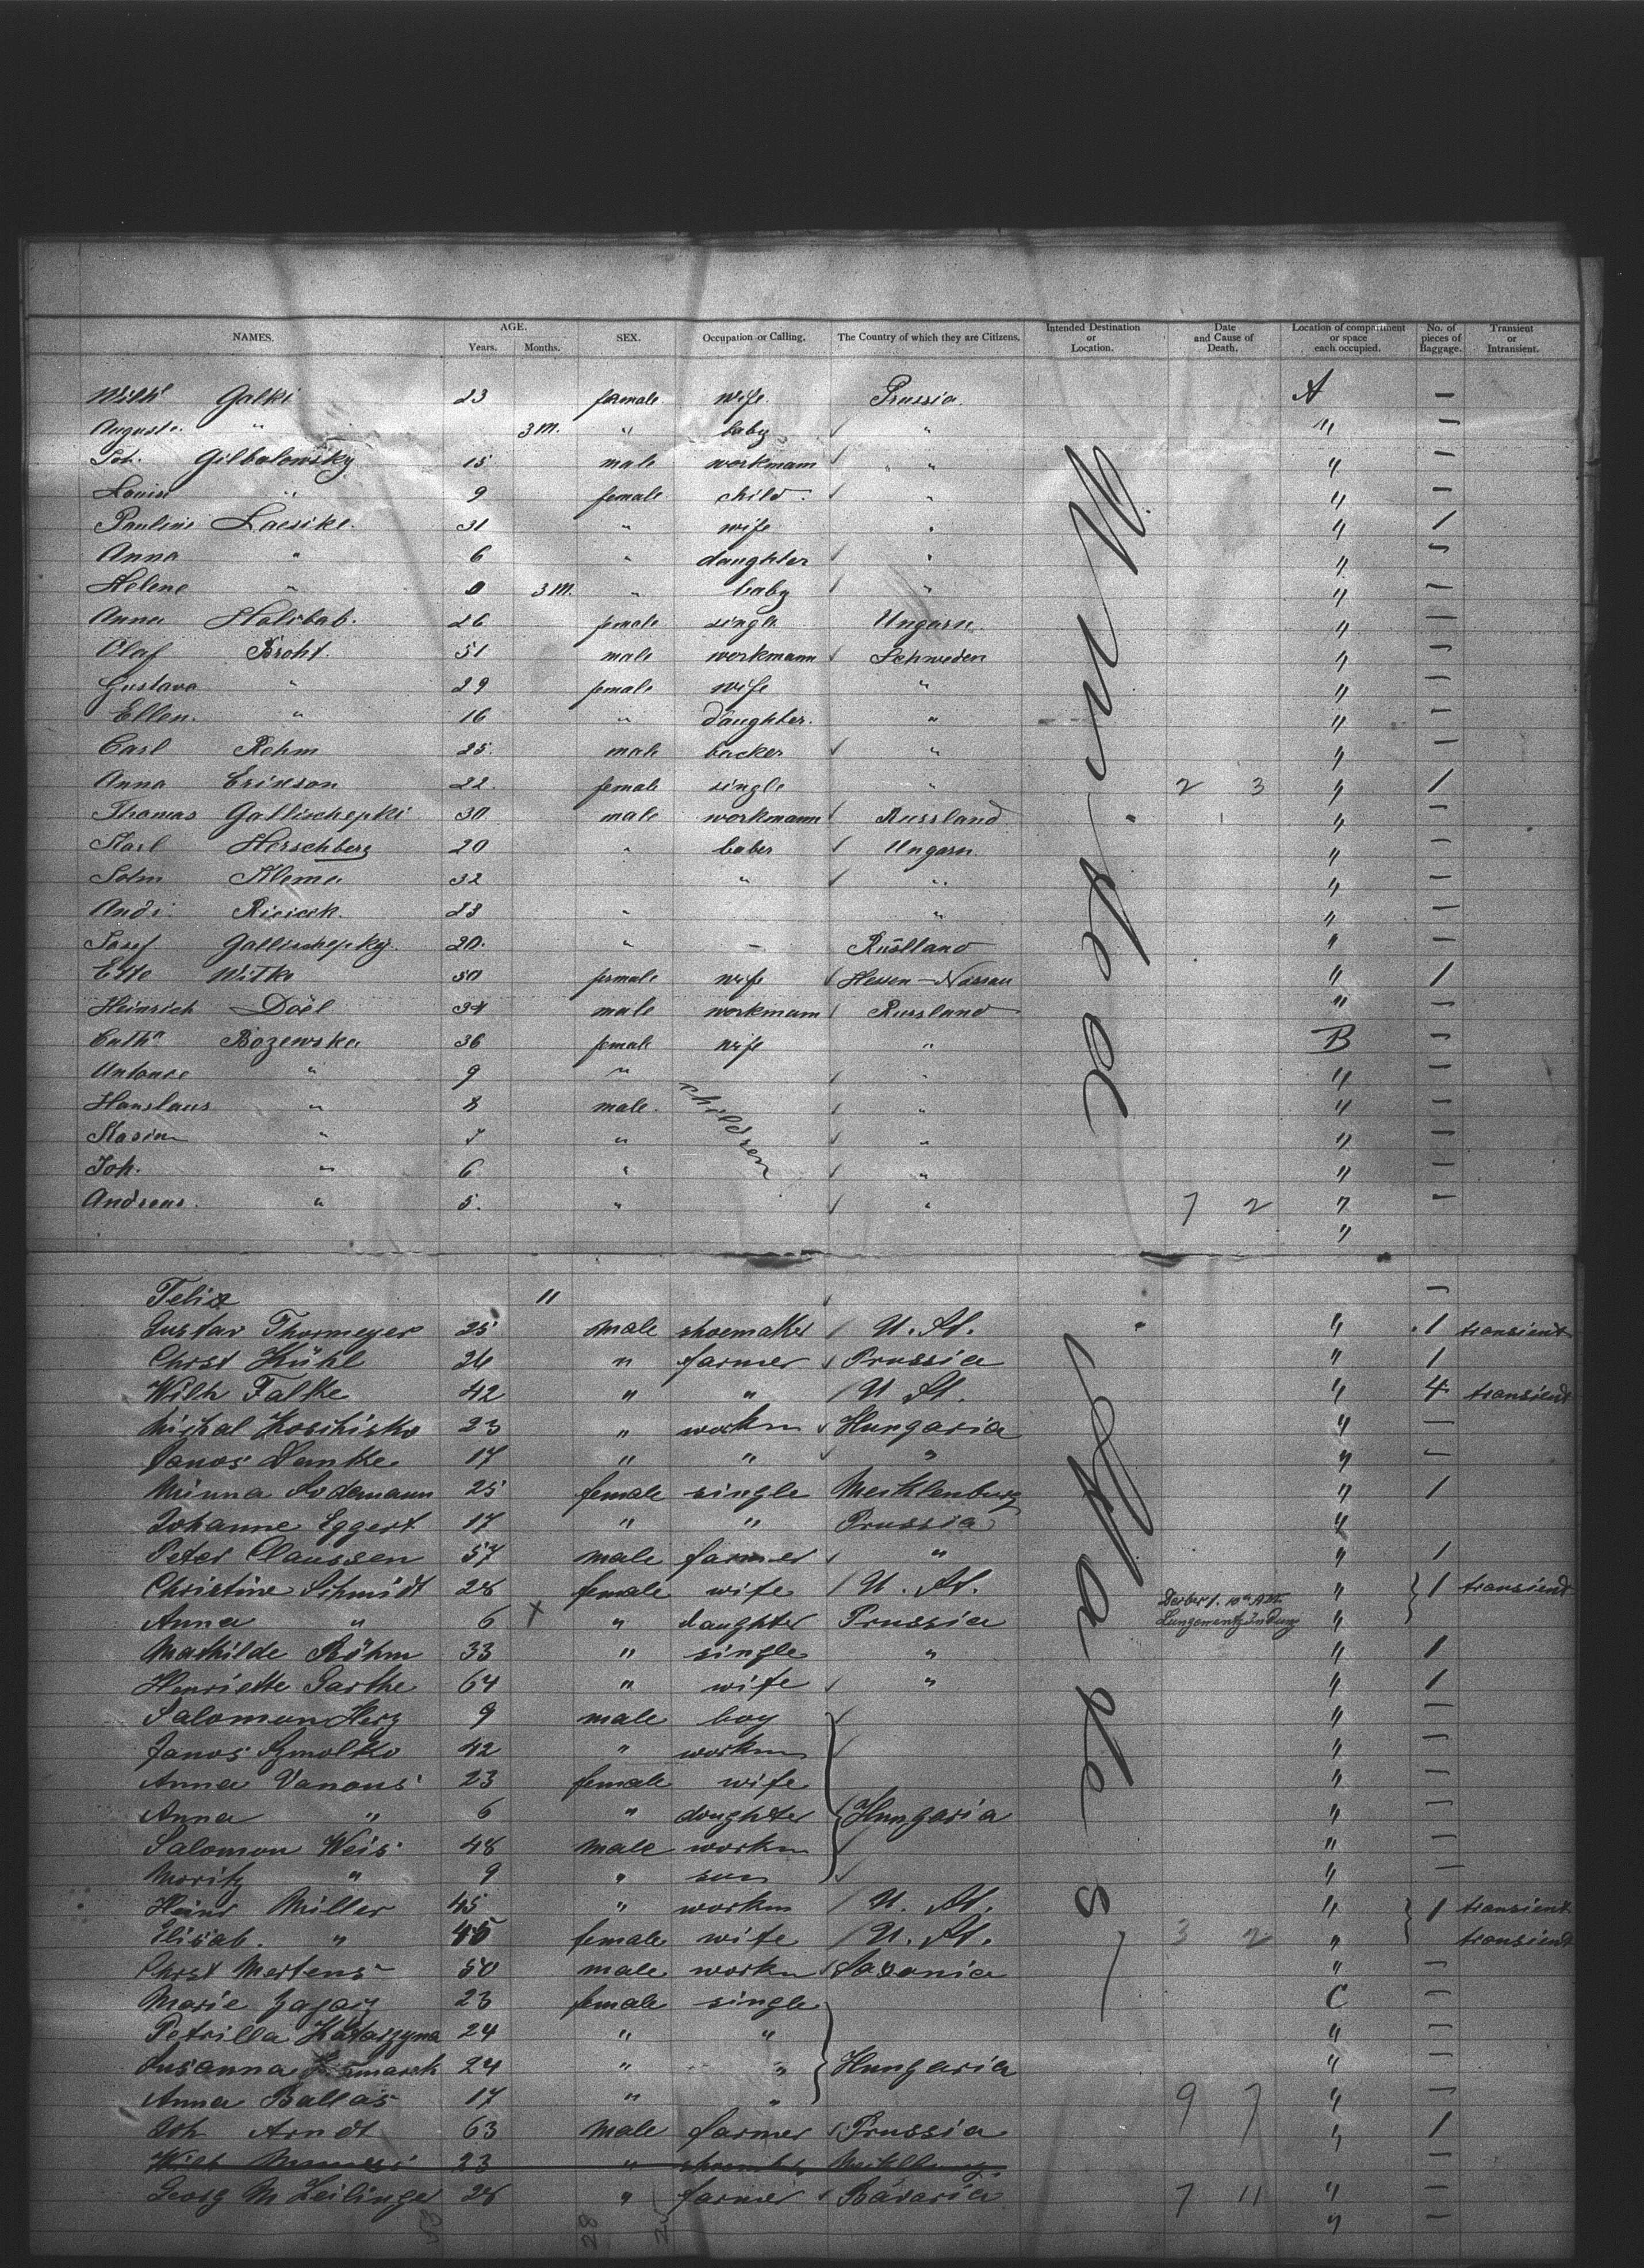 NAMES. AGE. Years. Months. SEX. Occupation or Calling. The Country of which they are Citizens. Intended Destination or Location. Date and Cause of Death. Location of compartment or space each occupied. No. of pieces of Baggage. Transient or Intransient.
Galki 23 female wife Prussia A —
Auguste " 3 M. " baby " " —
15 male workmann " " —
Louise " 9 female child " " —
Pauline Laesike 31 " wife " " 1
Anna " 6 " daughter " " —
Helene " 0 3 M. " baby " " —
Anna 26 female single Ungarn " —
Olaf Broht. 51 male workmann Schweden " —
Gustava " 29 female wife " " —
Ellen. " 16 " daughter. " " —
Carl Rehm 25 male backer " " —
Anna Erikson 22 female single " 2 3 " 1
Thomas Gallischepki 30 male workmann Russland " —
Karl Herschberg 20 " Ungarn " —
Klema 32 " " " —
Andr. 23 " " " —
Josef Gallischepky. 20. " — Russland " —
Witke 50 female wife Hessen-Nassau " 1
Heinrich Doël 34 male workmann Russland " —
Cath.ª Bozewska 36 female wife " B —
" 9 " children " " —
" 8 male. " " —
Kasim " 7 " " " —
Joh. " 6 " " " —
Andreas. " 5. " " 7 2 " —
"
Felix 11 —
Gustav Thormeyer 25 male shoemaker U. St. " 1 transient
Christ Kühl 26 " farmer Prussia " 1
Wilh Falke 42 " " U St. " 4 transient
Michal Koschisko 23 " workm Hungaria " —
Janos 17 " " " " —
Minna Lodemann 25 female single Mecklenburg " 1
Johanne Eggert 17 " " Prussia "
Peter Claussen 57 male farmer " " 1
Christine Schmidt 28 female wife U. St. " 1 transient
Anna " 6 X " daughter Prussia Lungenentzündung "
Mathilde Röhm 33 " single " " 1
Henriette Parthe 64 " wife " " 1
Salomon Herz 9 male boy " —
Janos Szmolko 42 " workm " —
Anna Vanous 23 female wife " —
Anna " 6 " doughter Hungaria " —
Salomon Weis 48 male workm " —
Moritz " 9 " son " —
Heinr Müller 45 " workm U. St. " 1 transient
Elisab. " 45 female wife U. St. 3 2 " transient
Christ Mertens 50 male workm Saxonia " —
Marie Zagarz 23 female single C —
Petrilla Katarzyna 24 " " " —
Susanna 24 " " Hungaria " —
Anna Ballas 17 " " 9 7 " —
Joh Arndt 63 male farmer Prussia " 1
Wilh 23 " —
Georg M Zeilinger 28 " farmer Bavaria 7 11 " —
28 " —
New York